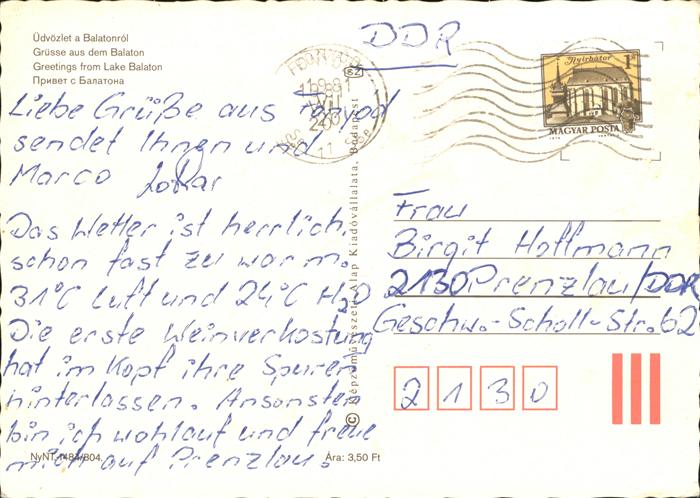 Üdvözlet a Balatonról
Grüsse aus dem Balaton
Greetings from Lake Balaton
Привет с Балатона
Liebe Grüße aus Fonyod
sendet Ihnen und
Marco
Das Wetter ist herrlich,
schon fast zu warm.
31°C Luft und 24°C H₂O
Die erste Weinverkostung
hat im Kopf ihre Spuren
hinterlassen. Ansonsten
bin ich wohlauf und freue
mich auf Prenzlau.
NyNT-1484/804.
Ára: 3,50 Ft
© Képzőművészeti Alap Kiadóvállalata, Budapest
DDR
Nyírbátor
1Ft
MAGYAR POSTA
Frau
Birgit Hoffmann
2130 Prenzlau/DDR
Geschw.-Scholl-Str. 62
2 1 3 0